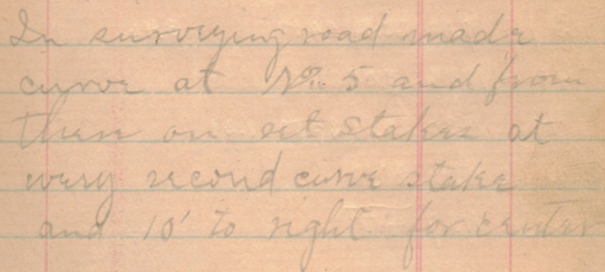 In surveying road made
curve at No. 5 and from
there on set stakes at
every second curve stake
and 10' to right for center